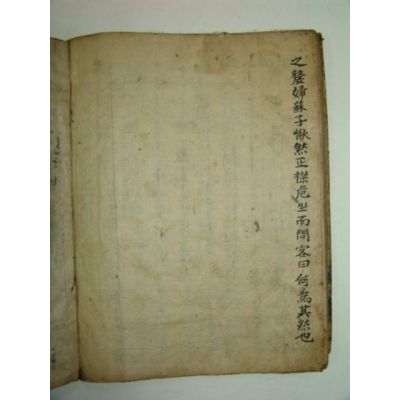 之嫠婦蘇子愀然正襟危坐而問客曰何爲其然也